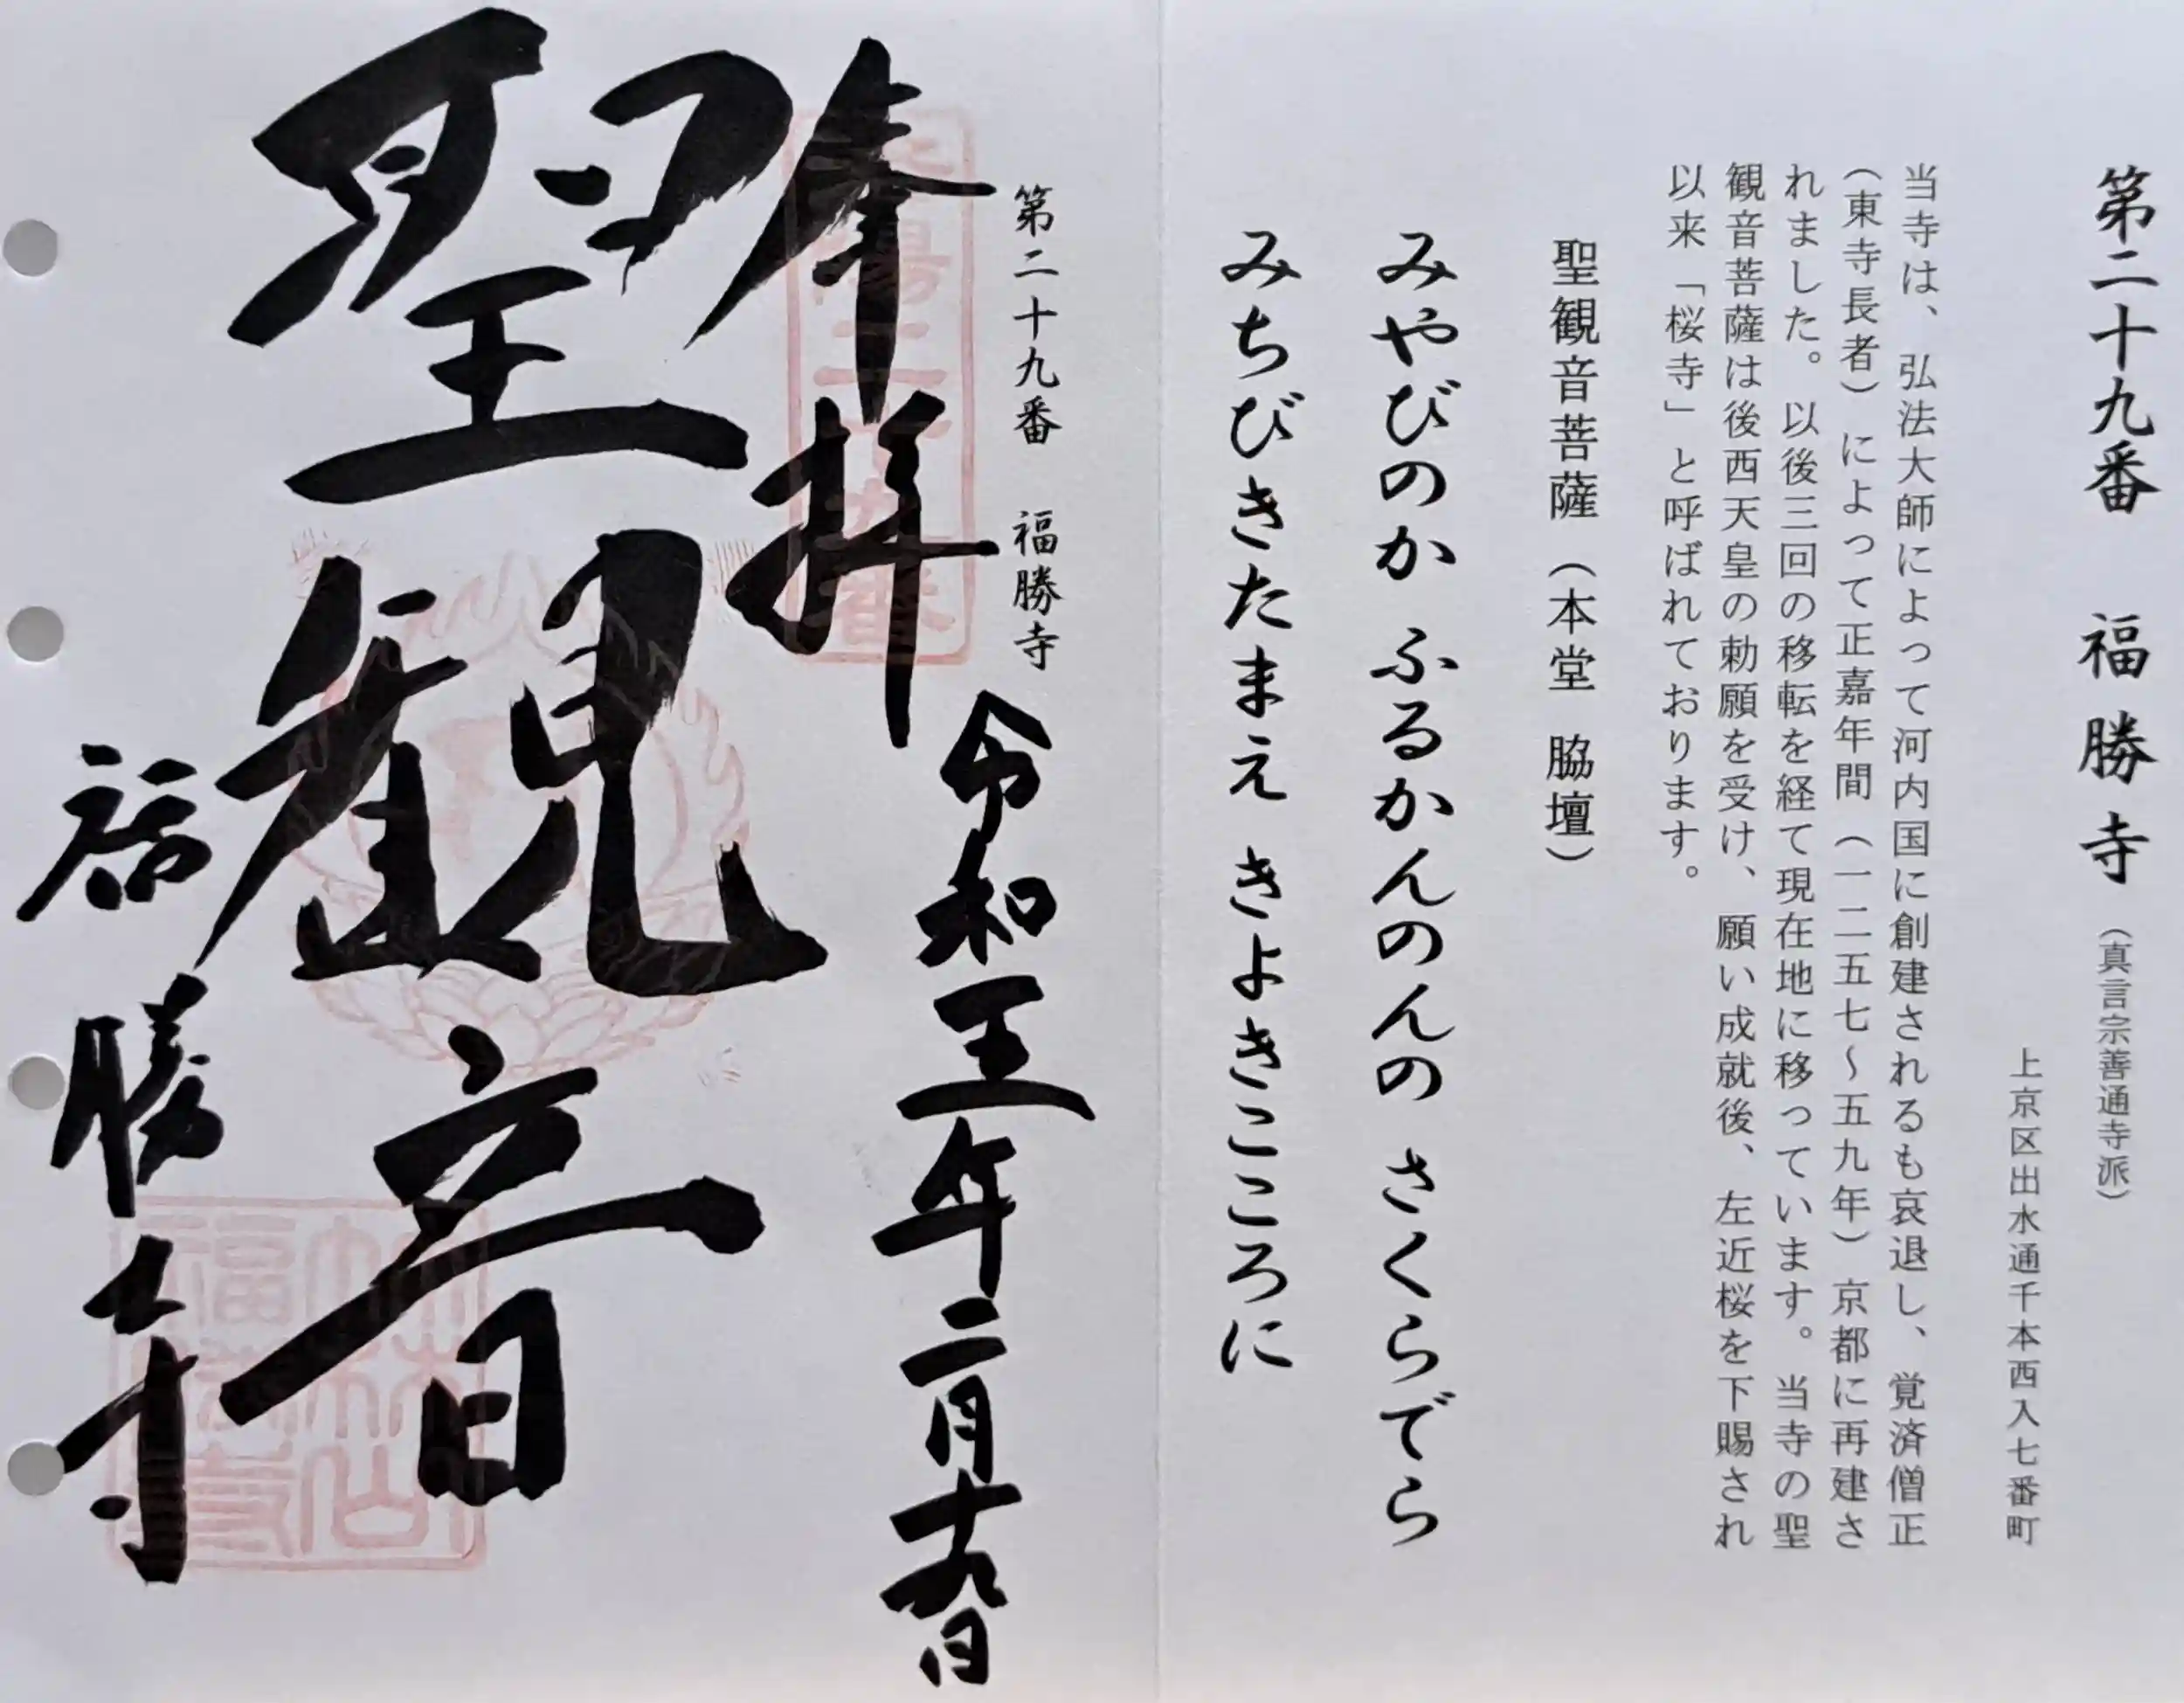 第二十九番 福勝寺（真言宗善通寺派）
上京区出水通千本西入七番町
当寺は、弘法大師によって河内国に創建されるも哀退し、覚済僧正
（東寺長者）によって正嘉年間（一二五七～五九年）京都に再建さ
れました。以後三回の移転を経て現在地に移っています。当寺の聖
観音菩薩は後西天皇の勅願を受け、願い成就後、左近桜を下賜され
以来「桜寺」と呼ばれております。
聖観音菩薩（本堂 脇壇）
みやびのか ふるかんのんの さくらでら
みちびきたまえ きよきこころに
第二十九番 福勝寺
奉拝
令和五年二月十九日
聖観音
福勝寺
洛陽二十九番
竹林山福勝寺